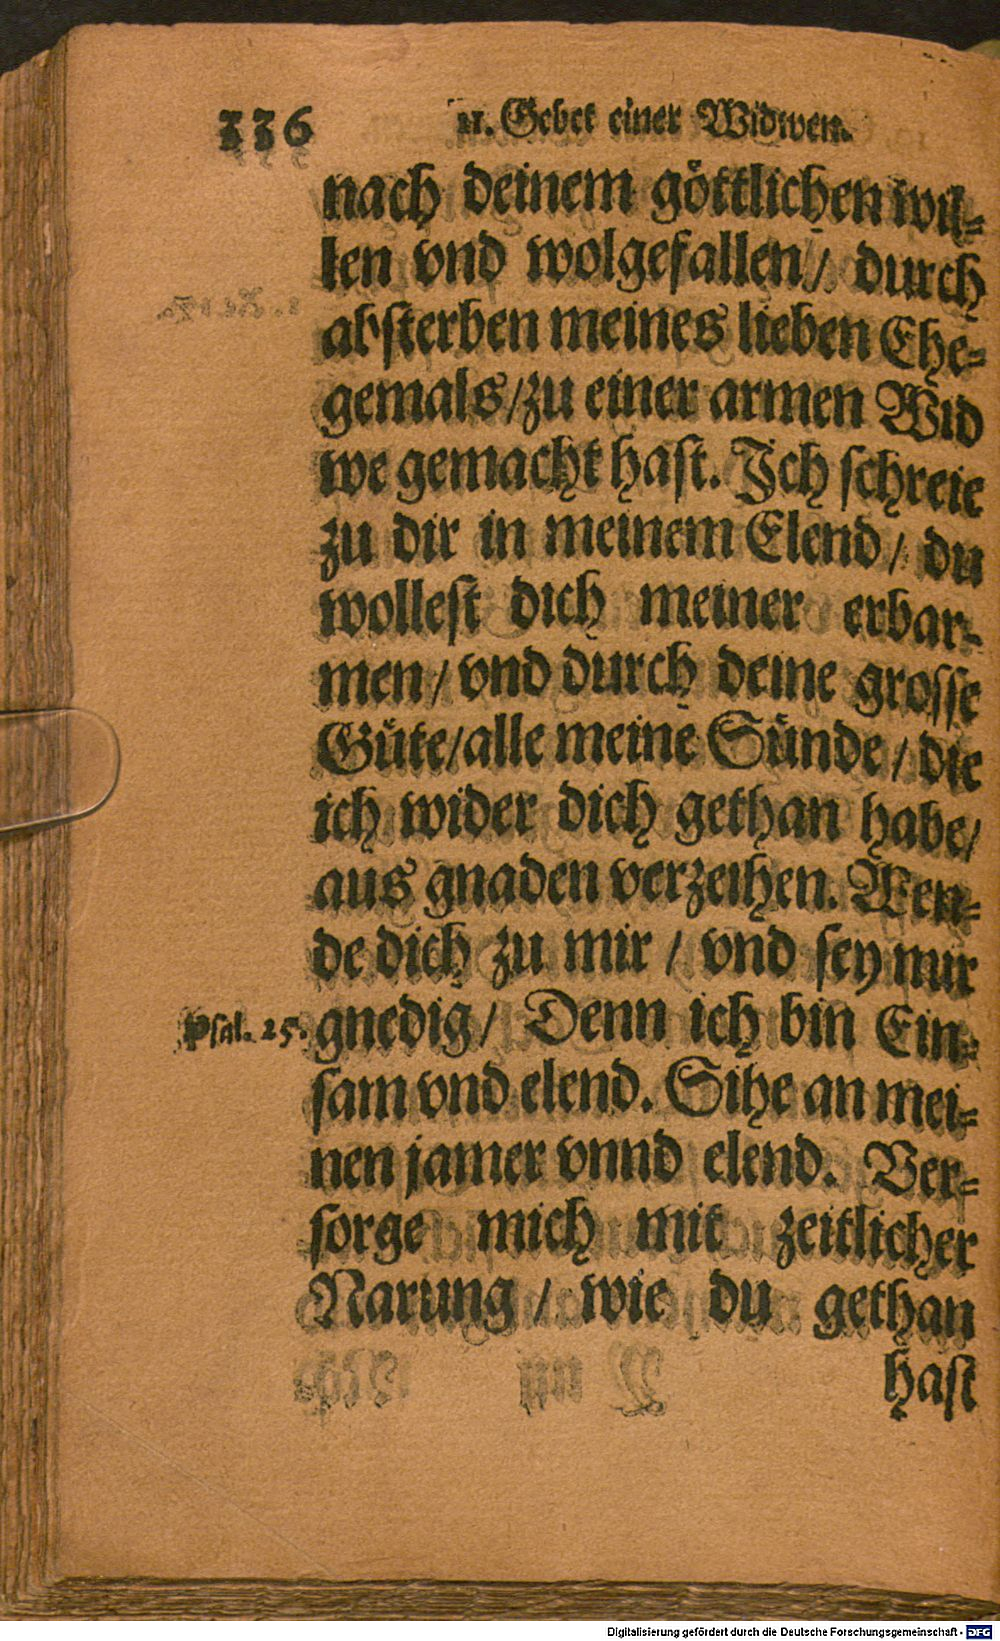 336 11. Gebet einer Widwen.
nach deinem göttlichen wil-
len vnd wolgefallen / durch
absterben meines lieben Ehe-
gemals / zu einer armen Wid
we gemacht hast. Ich schreie
zu dir in meinem Elend / du
wollest dich meiner erbar-
men / vnd durch deine grosse
Güte / alle meine Sünde / die
ich wider dich gethan habe /
aus gnaden verzeihen. Wen-
de dich zu mir / vnd sey mir
Psal. 25. gnedig / Denn ich bin Ein-
sam vnd elend. Sihe an mei-
nen jamer vnnd elend. Ver-
sorge mich mit zeitlicher
Narung / wie du gethan
hast
Digitalisierung gefördert durch die Deutsche Forschungsgemeinschaft - DFG